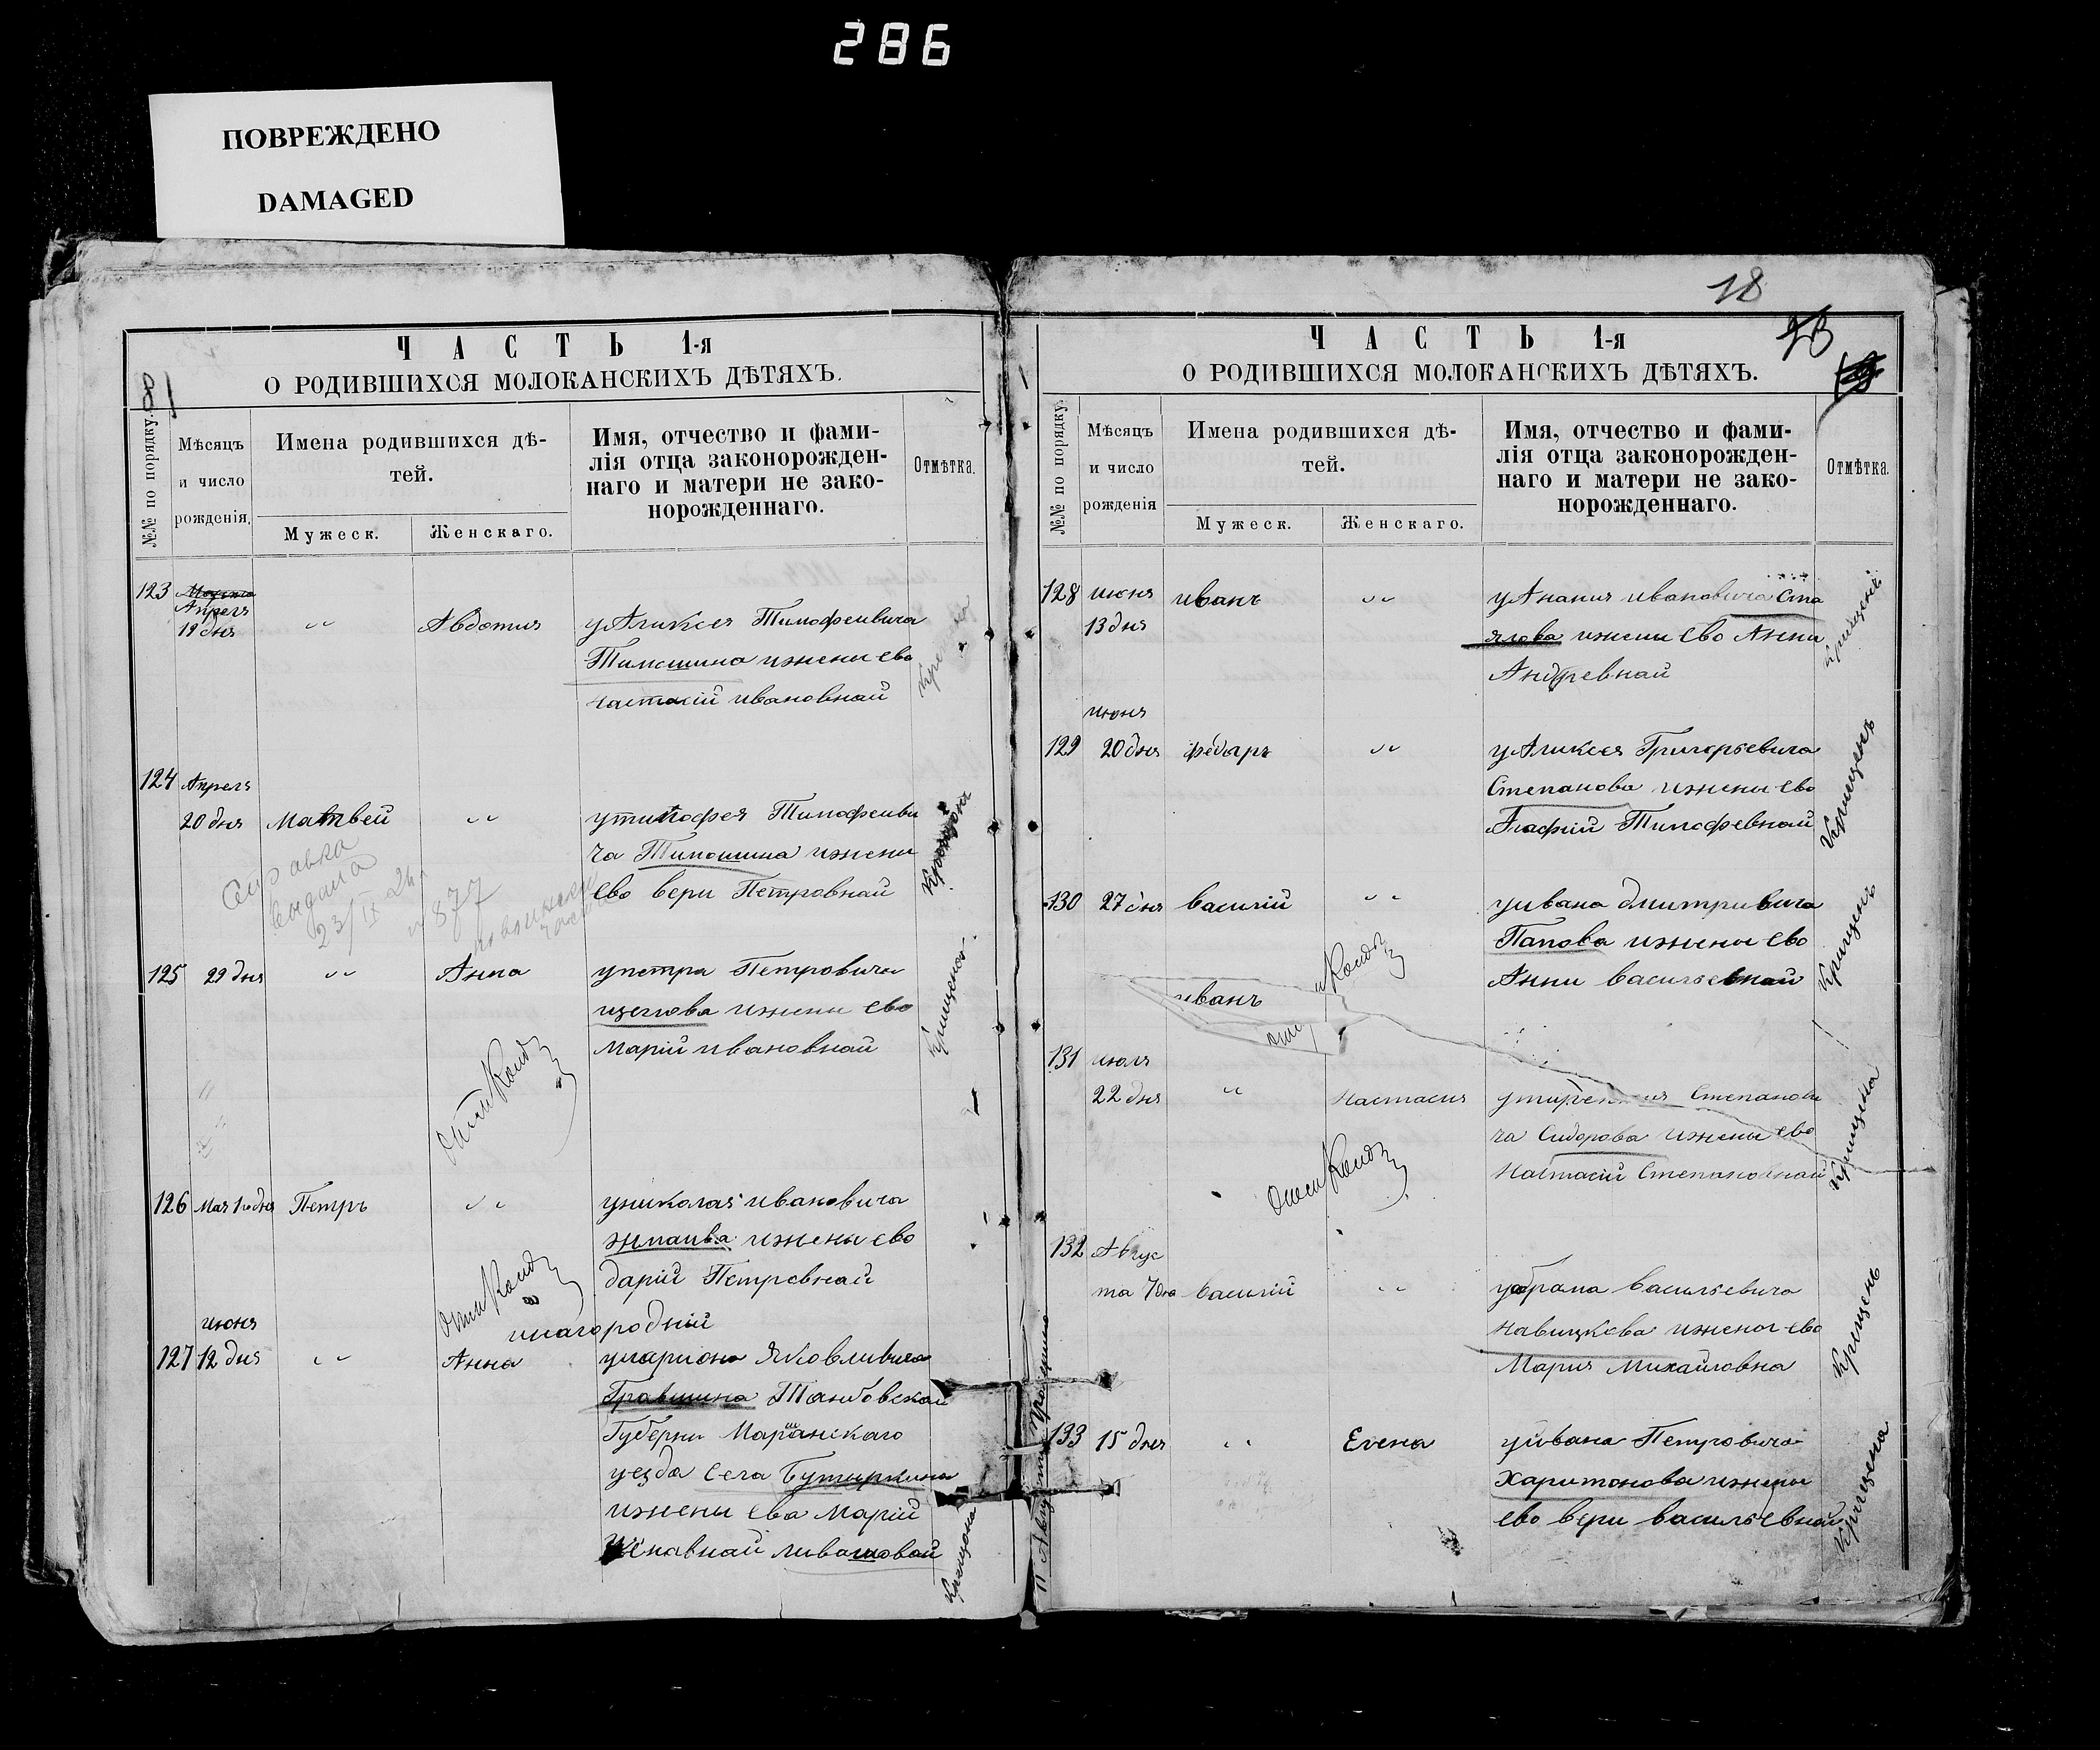 286
ПОВРЕЖДЕНО
DAMAGED
81
ЧАСТЬ 1-я
О РОДИВШИХСЯ МОЛОКАНСКИХЪ ДѢТЯХЪ.
№№ по порядку.
Мѣсяцъ
и число
рожденія.
Имена родившихся дѣ-
тей.
Мужеск.
Женскаго.
Имя, отчество и фами-
лія отца законорожден-
наго и матери не зако-
норожденнаго.
Отмѣтка.
123
Апреля
19 дня
" "
Авдотия
у Аликсея Тимофеивича
Тимошина ижени ево
настасiй ивановнай
124 Апреля
20 дня Матвей " "
утимофея Тимофеиви
ча Тимошина ижени
ево вери Петровнай
Справка
выдана
23/IX 24
877
125 29 дня " " Анна
упетра Петровича
щеглова ижени ево
Марiй ивановнай
Крищена
126 Мая 1го дня Петръ " "
униколая ивановича
ижени ево
дарiй Петровнай
июня
инагороднiй
127 12 дня " " Анна
умариона Яковливича
Гравшина Танбовскай
Губерни Маршанскаго
уезда Села Бутыркина
ижени ева Марiй
ливашовай
Крищона
18
ЧАСТЬ 1-я
О РОДИВШИХСЯ МОЛОКАНСКИХЪ ДѢТЯХЪ.
№№ по порядку.
Мѣсяцъ
и число
рожденія
Имена родившихся дѣ-
тей.
Мужеск.
Женскаго.
Имя, отчество и фами-
лія отца законорожден-
наго и матери не зако-
норожденнаго.
Отмѣтка.
128 июня иванъ " "
13 дня
уАнания ивановича Ста
ялова ижени ево Анни
Андревнай
июня
129 20 дня федаръ " "
уАликсея Григорьевича
Степанова ижени ево
Агафiй Тимофевнай
Крищенъ
130 27 дня василiй " "
уивана дмитривича
Папова ижени ево
Анни васильевнай
Крищенъ
иванъ
131 июля
22 дня " Настасия
Степанови
ча Сидорова ижени ево
Настасiй Степановнай
Крищена
132 Авгус
та 7 дня василiй " "
уабрама васильевича
Навицкова ижена ево
Мария Михайловна
Крещенъ
133 15 дня " " Елена
уйвана Петровича
Харитонова ижени
ево вери васильевнай
Крищена